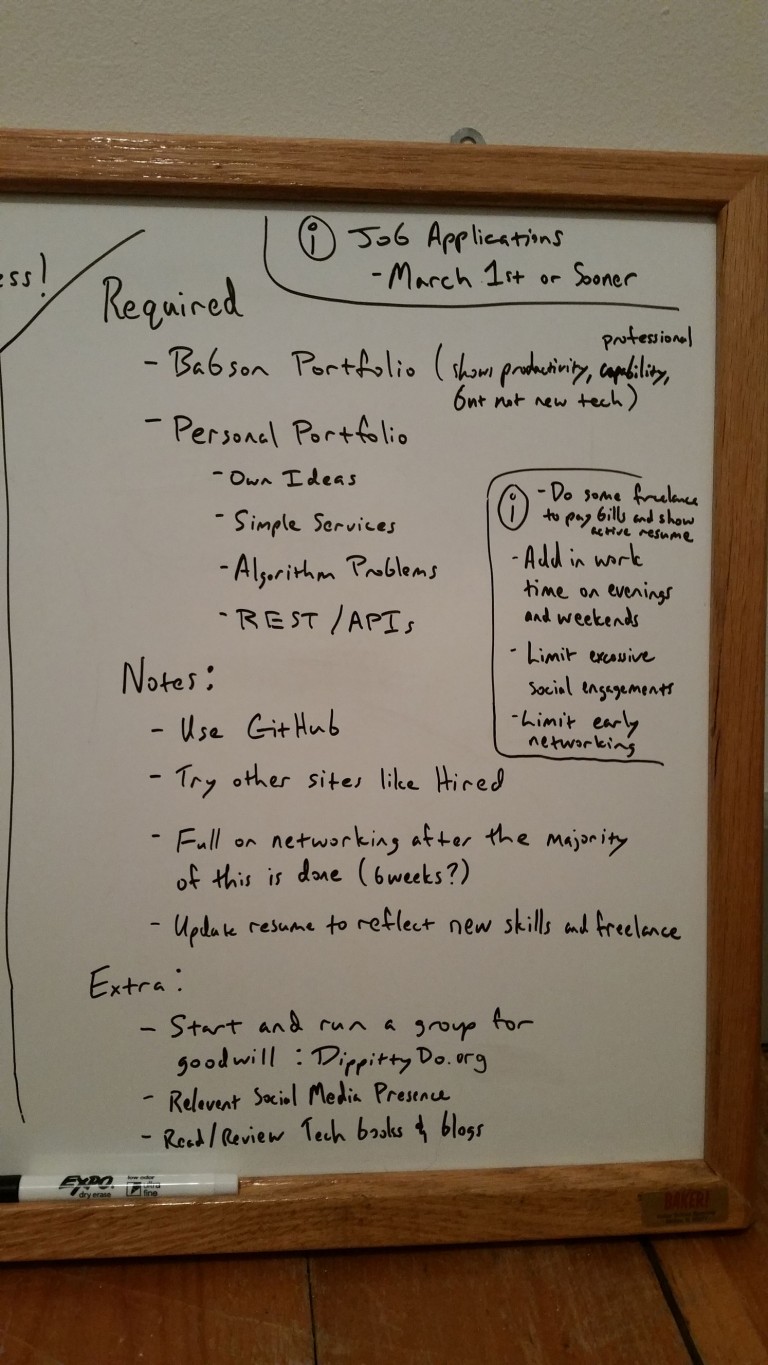 ess!
i Job Applications
- March 1st or Sooner
Required
professional
- Babson Portfolio (shows productivity, capability,
but not new tech)
- Personal Portfolio
- Own Ideas
- Simple Services
- Algorithm Problems
- REST/APIs
i - Do some freelance
to pay bills and show
active resume
- Add in work
time on evenings
and weekends
- Limit excessive
social engagements
- Limit early
networking
Notes:
- Use GitHub
- Try other sites like Hired
- Full on networking after the majority
of this is done (6 weeks?)
- Update resume to reflect new skills and freelance
Extra:
- Start and run a group for
goodwill : DippittyDo.org
- Relevent Social Media Presence
- Read/Review Tech books & blogs
EXPO
dry erase
low odor
ultra
fine